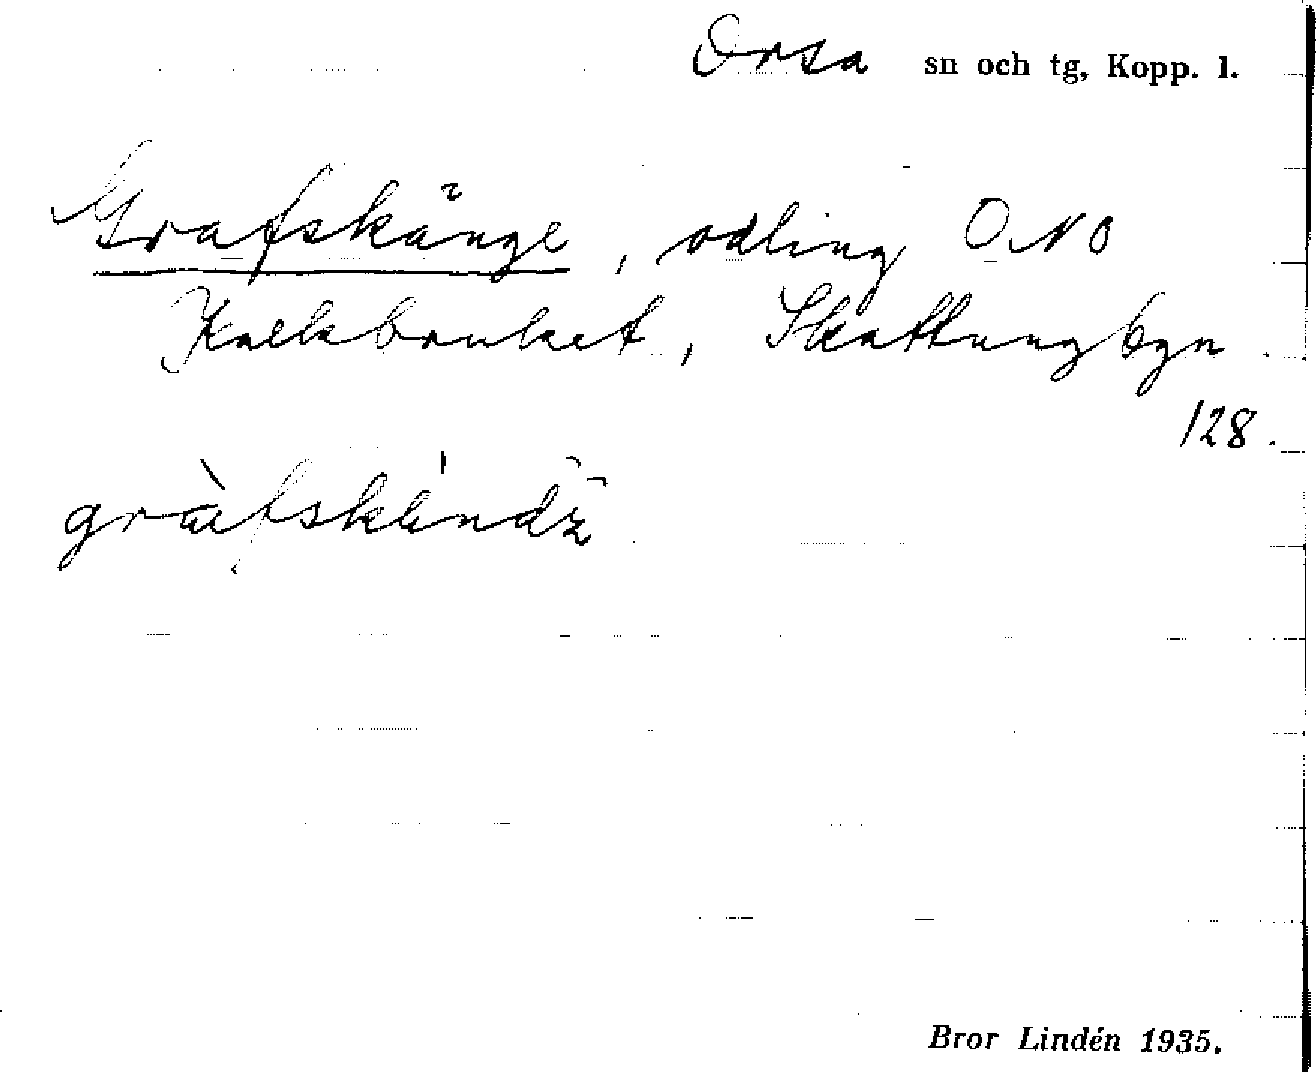 Orsa sn och tg, Kopp. l.
Grafskänge, odling ONO
Kalkbrukel, Skattungbyn
128.
gräfskändz
Bror Lindén 1935.